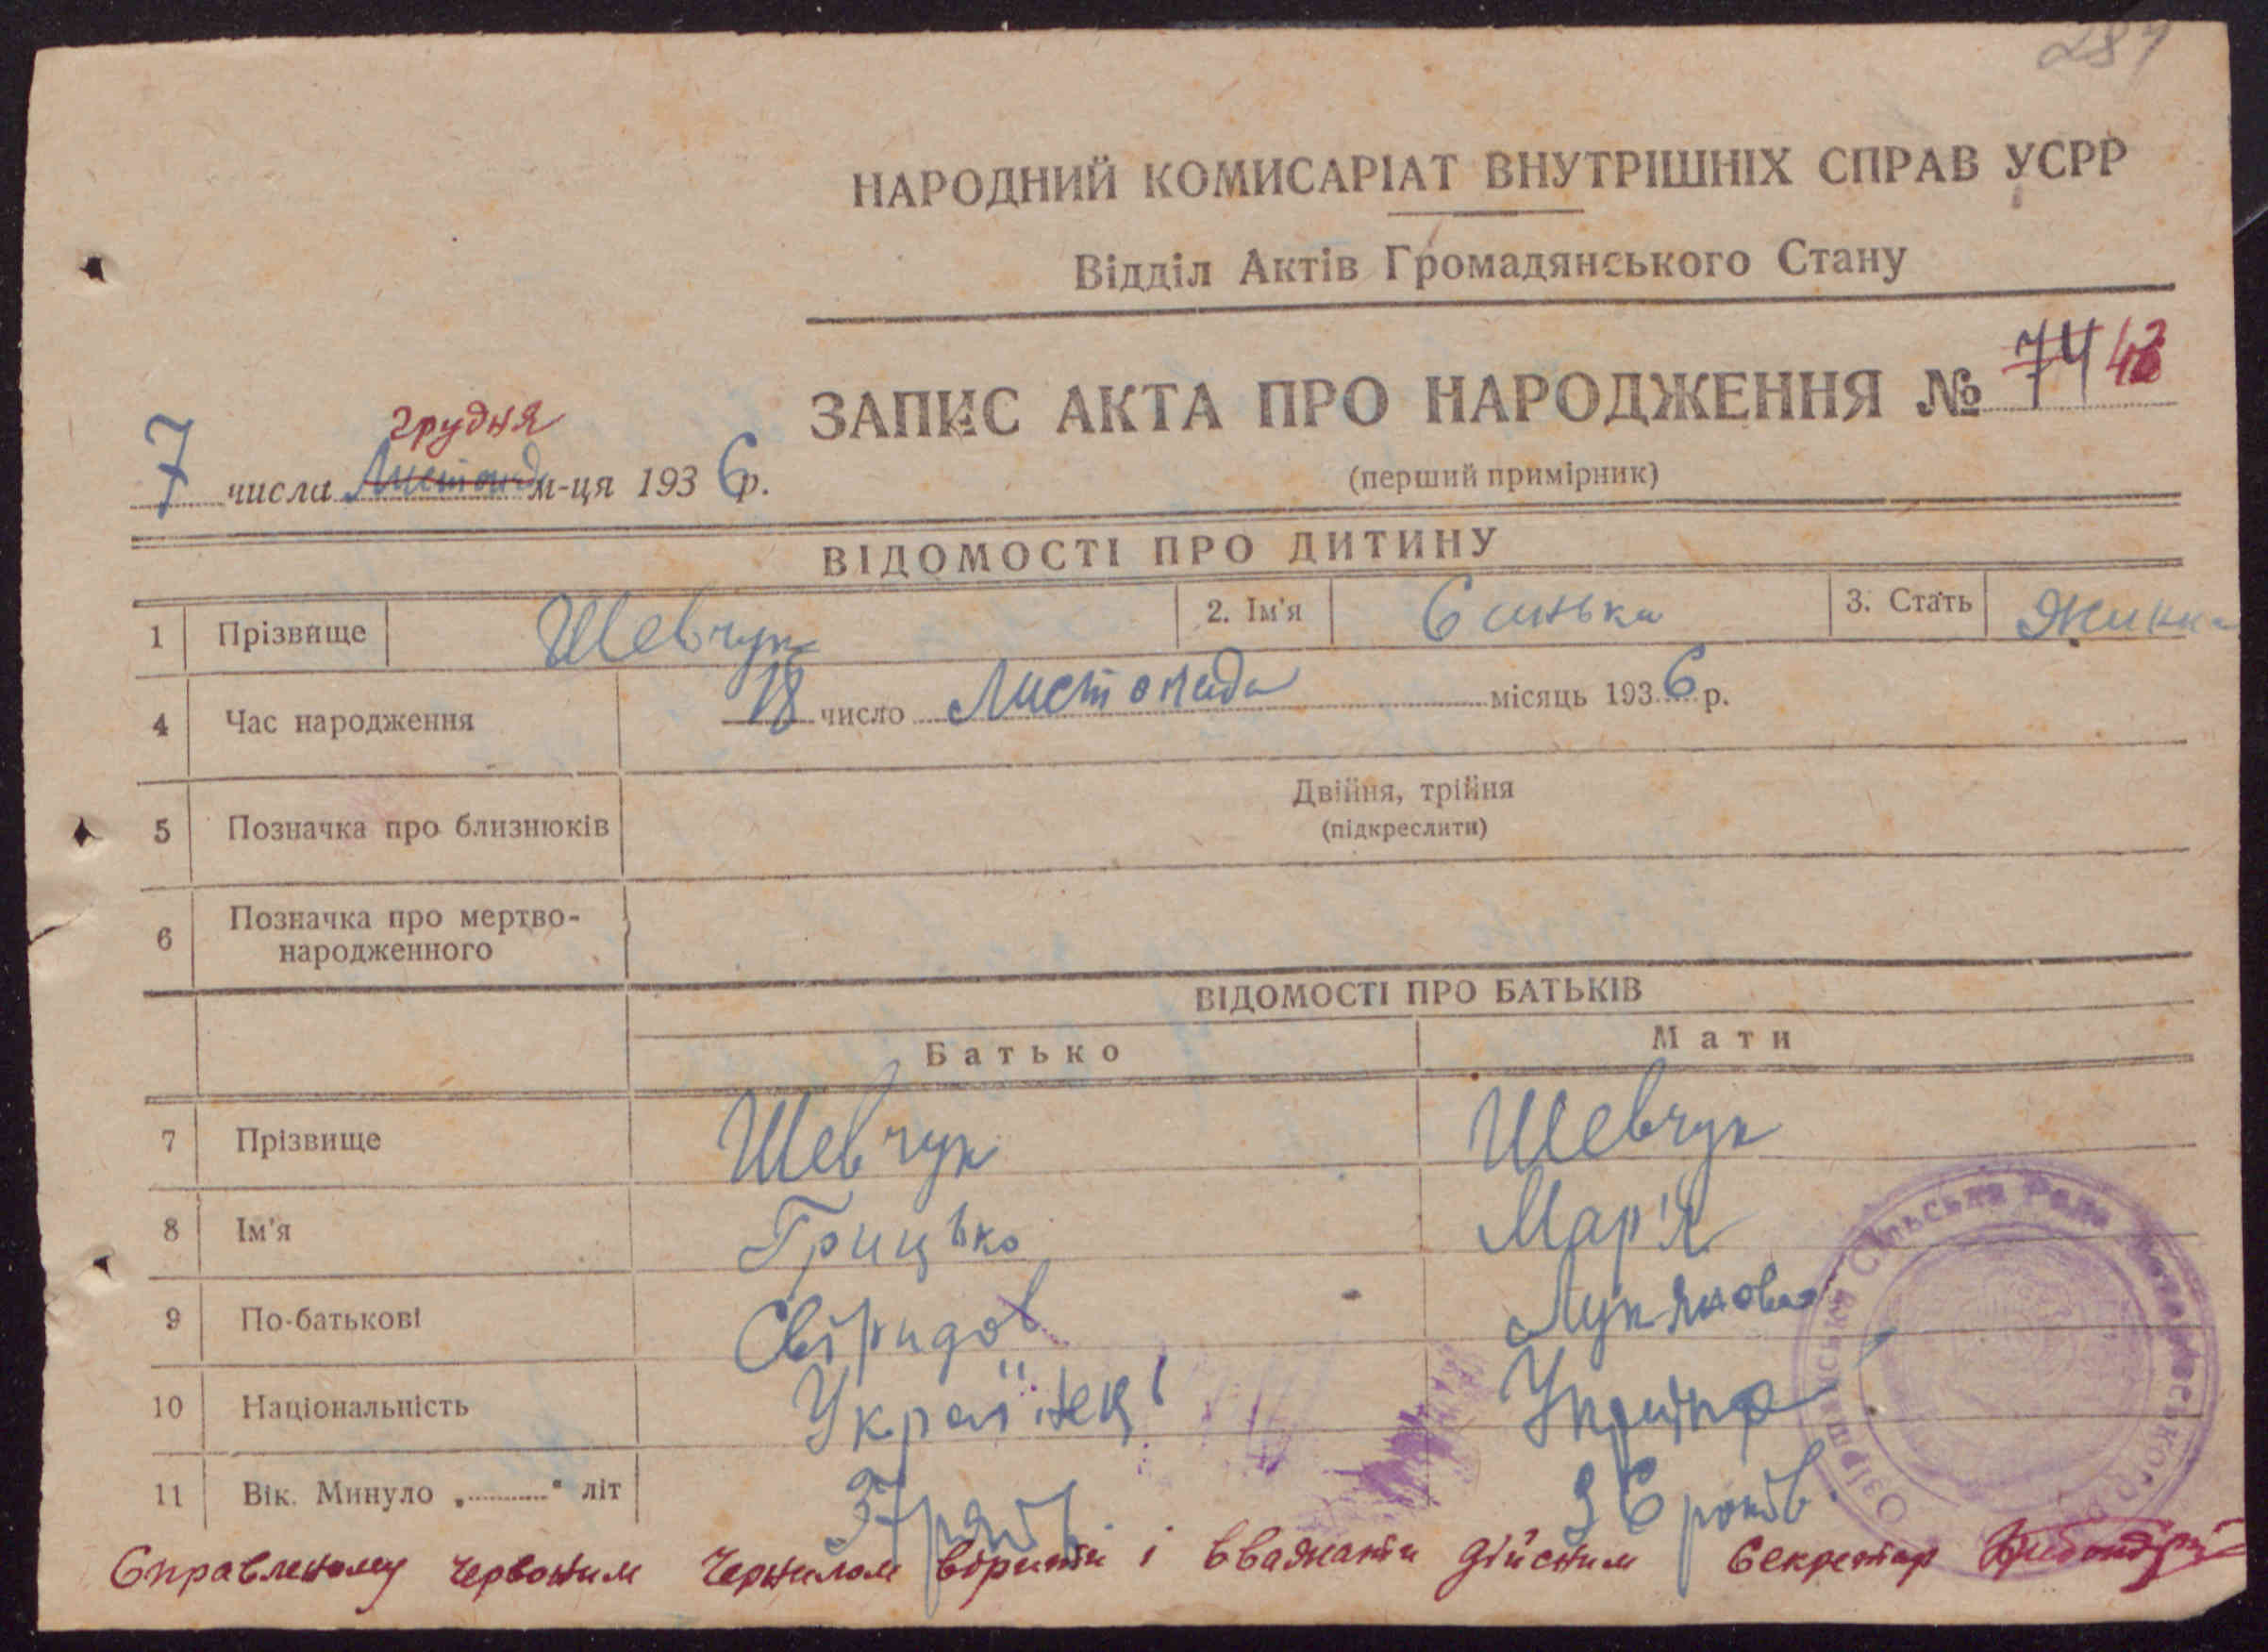 НАРОДНИЙ КОМИСАРІАТ ВНУТРІШНІХ СПРАВ УСРР
Відділ Актів Громадянського Стану
ЗАПИС АКТА ПРО НАРОДЖЕННЯ №
(перший примірник)
грудня
7 числа Листопад м-ця 1936 р.
ВІДОМОСТІ ПРО ДИТИНУ
1 Прізвище Шевчук 2. Ім'я Єинька 3. Стать
4 Час народження 18 число Листопада місяць 1936 р.
5 Позначка про близнюків Двійня, трійня
(підкреслити)
6 Позначка про мертво-
народженного
ВІДОМОСТІ ПРО БАТЬКІВ
Батько Мати
7 Прізвище Шевчук Шевчук
8 Ім'я Грицько Мар'я
9 По-батькові Свіридов Лукянова
10 Національність Українець
11 Вік. Минуло „........" літ 37 років 36 років.
Справленому червоним чернилом вірити і вважати дійсним Секретар
Сільська Рада